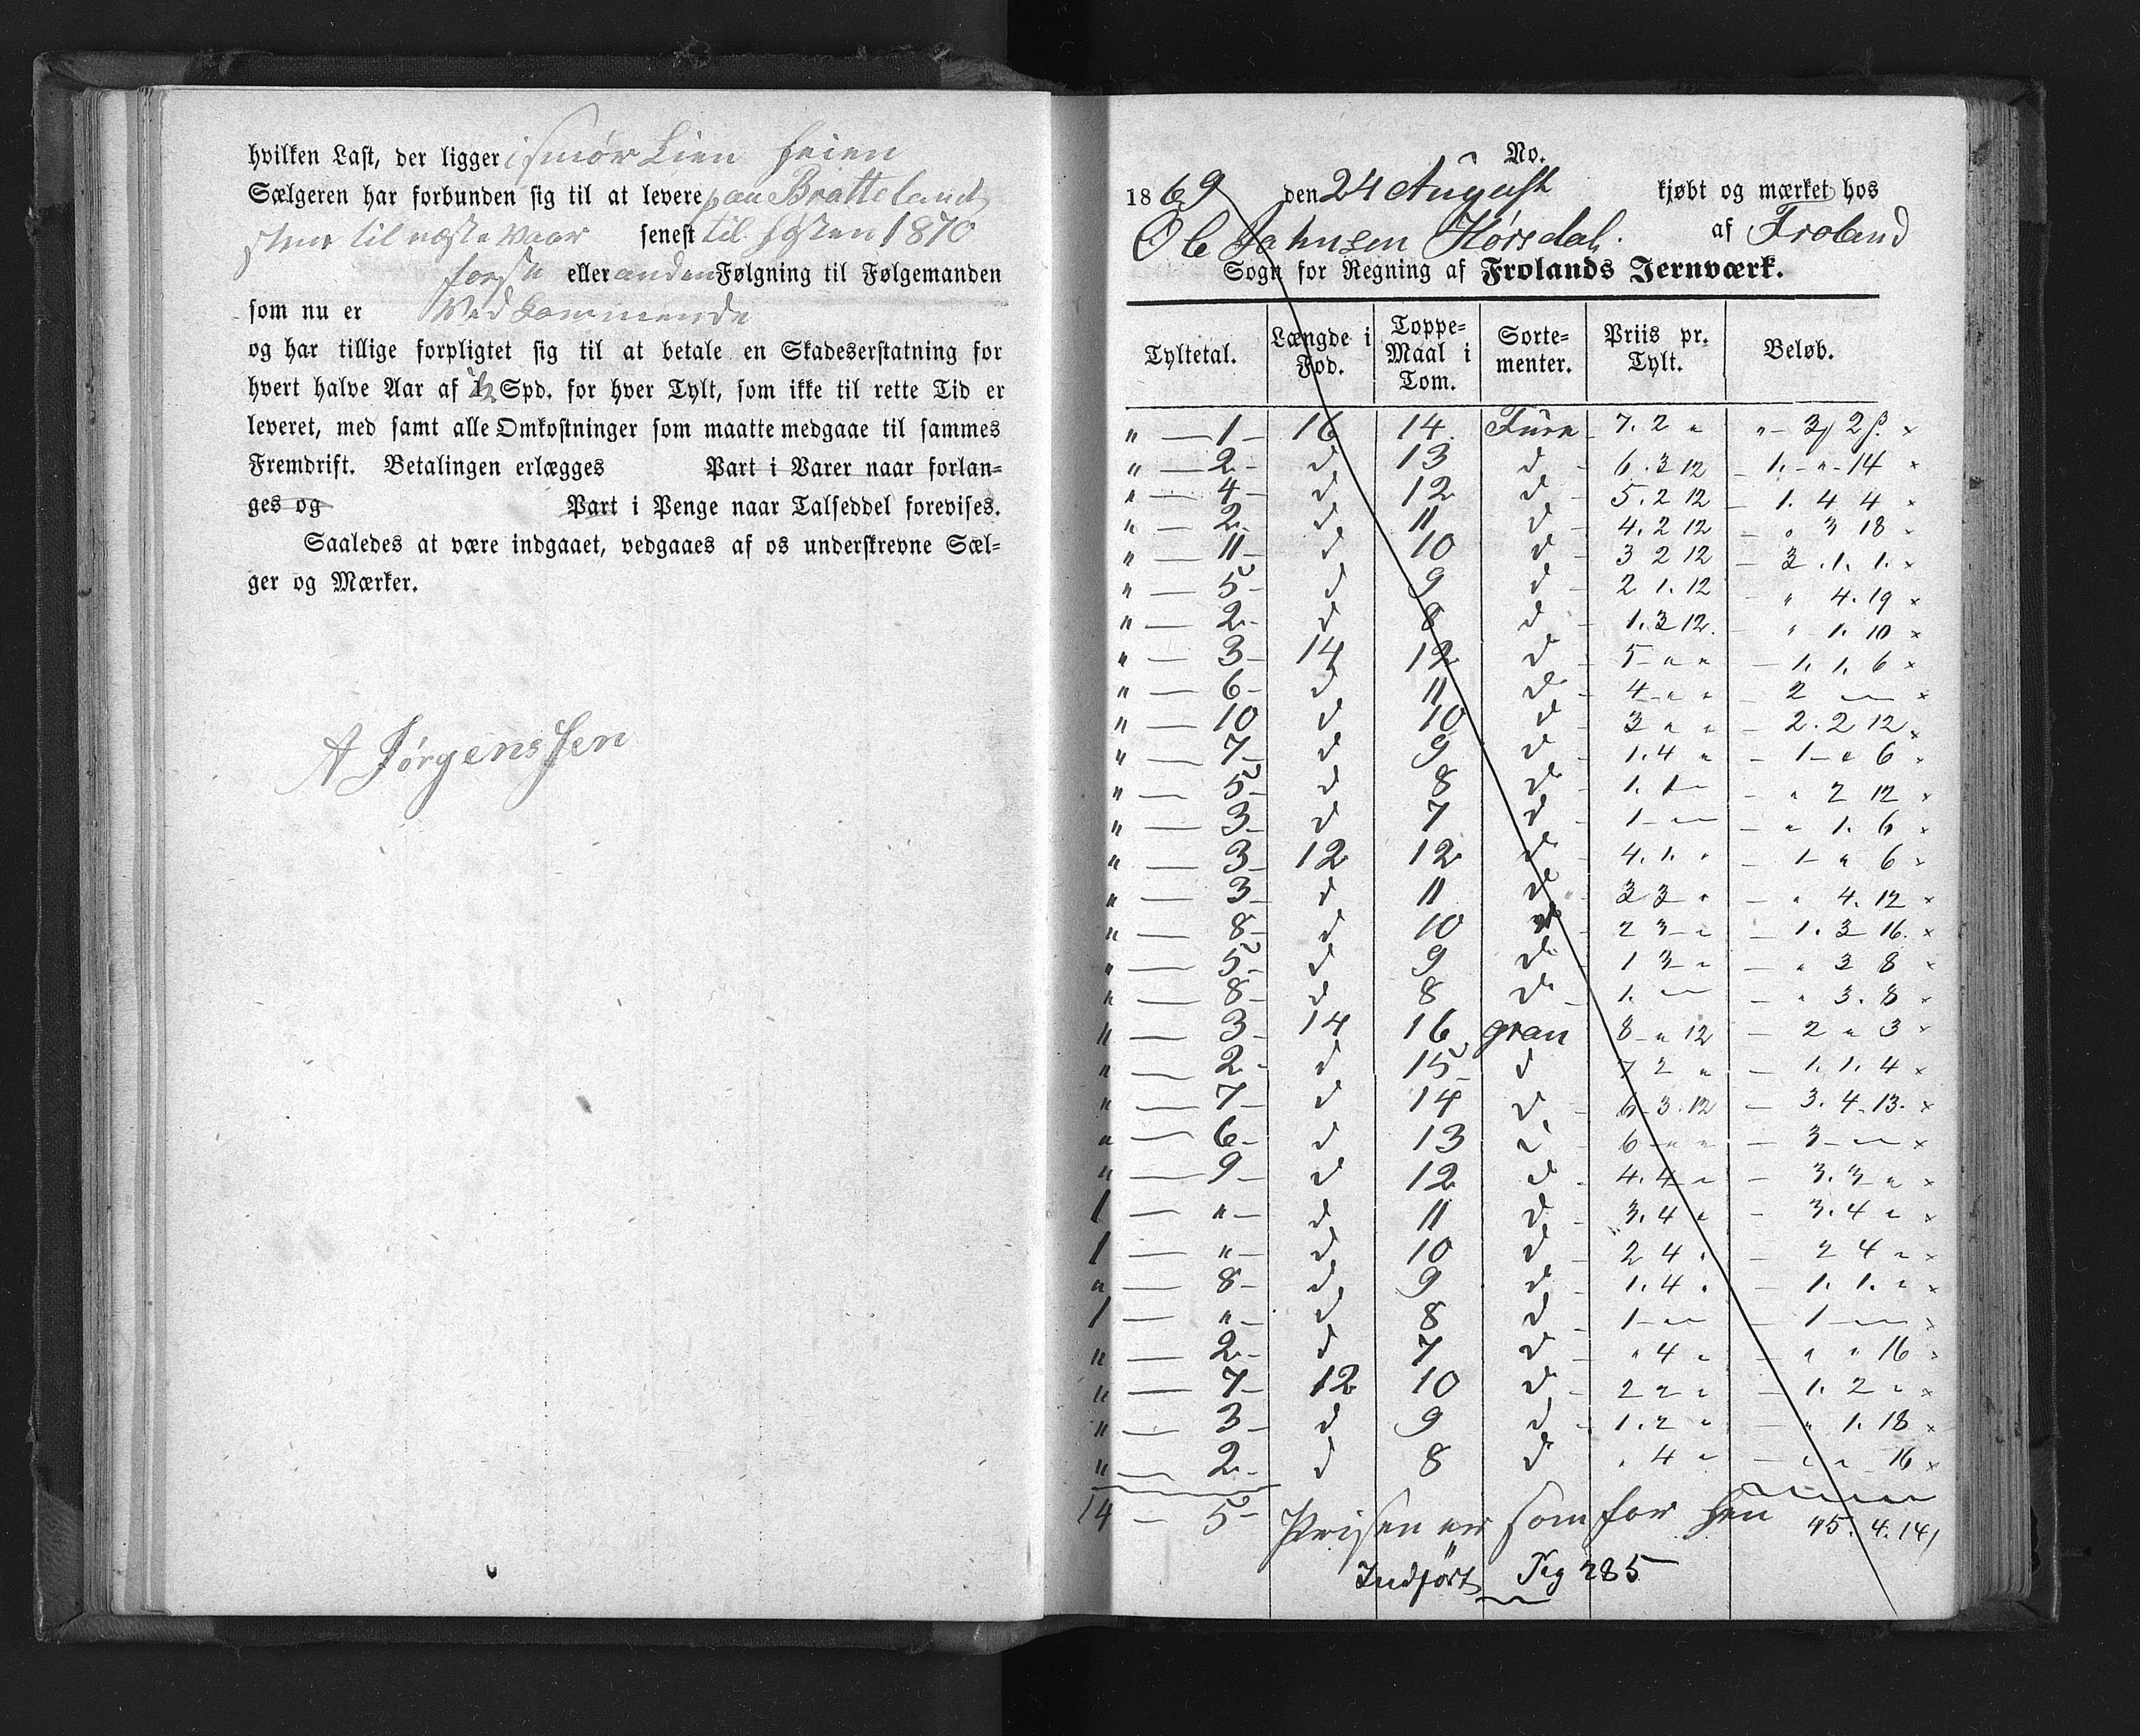 hvilken Last, der ligger i smør Lien heien
Sælgeren har forbunden sig til at levere paa Bratteland
til næste Vaar senest til høsten 1870
første eller anden Følgning til Følgemanden
som nu er Vedkommende
og har tillige forpligtet sig til at betale en Skadeserstatning for
hvert halve Aar af 1/2 Spd. for hver Tylt, som ikke til rette Tid er
leveret, med samt alle Omkostninger som maatte medgaae til sammes
Fremdrift. Betalingen erlægges Part i Varer naar forlan=
ges og Part i Penge naar Talseddel forevises.
Saaledes at være indgaaet, vedgaaes af os underskrevne Sæl=
ger og Mærker.
A Jørgenssen
No.
1869 den 24 August kjøbt og mærket hos
Ole Jahnsen Hørsdal. af Froland
Sogn for Regning af Frolands Jernværk.
Tyltetal. Længde i Fod. Toppe=Maal i Tom. Sorte=menter. Priis pr. Tylt. Beløb.
" — 1 — 16 14 Furu 7. 2 " " 3 2 ß. ×
" — 2 - d 13 d 6. 3 12 1. " 14 ×
" — 4 - d 12 d 5. 2 12 1. 4 4 ×
" — 2 - d 11 d 4. 2 12 " 3 18 ×
" — 11 - d 10 d 3 2 12 3. 1. 1. ×
" — 5 - d 9 d 2 1. 12 " 4. 19 ×
" — 2 - d 8 d 1. 3 12. " 1. 10 ×
" — 3 - 14 12 d 5 " " 1. 1. 6 ×
" — 6 - d 11 d 4 " " 2 " " ×
" — 10 d 10 d 3 " " 2. 2 12 ×
" — 7 - d 9 d 1. 4 " 1 " 6 ×
" — 5 - d 8 d 1. 1 " " 2 12 ×
" — 3 - d 7 d 1 " " " 1. 6 ×
" — 3 - 12 12 d 4. 1. " 1 " 6 ×
" — 3 - d 11 d 3 3 " " 4. 12 ×
" — 8 - d 10 d 2 3 " 1. 3 16. ×
" — 5 - d 9 d 1 3 " " 3 8 ×
" — 8 - d 8 d 1. " " " 3. 8 ×
" — 3 - 14 16 gran 8 " 12 2 " 3 ×
" — 2 - d 15 d 7 2 " 1. 1. 4 ×
" — 7 - d 14 d 6 3. 12 3. 4. 13. ×
" — 6 - d 13 d 6 " " 3 " " ×
" — 9 - d 12 d 4. 4 " 3. 3 " ×
1 — " - d 11 d 3. 4 " 3. 4 " ×
1 — " - d 10 d 2 4 " 2 4 " ×
" — 8 - d 9 d 1. 4 " 1. 1. " ×
1 — " - d 8 d 1 " " 1 " " ×
" — 2 - d 7 d " 4 " " " 16 ×
" — 7 - 12 10 d 2 " " 1. 2 " ×
" — 3 - d 9 d 1. 2 " " 1. 18 ×
" — 2 - d 8 d " 4 " " " 16 ×
14 — 5 - Prisen er som for hen 45. 4. 14
Indført Pag 285